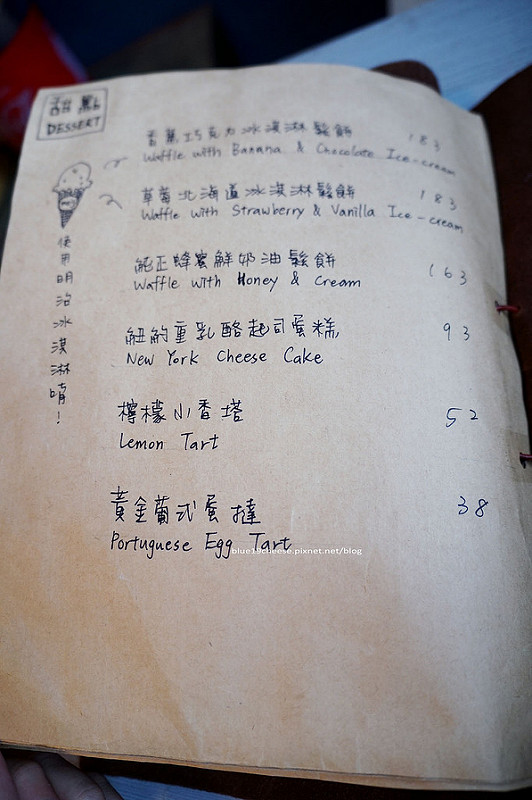 甜點
DESSERT
香蕉巧克力冰淇淋鬆餅 183
Waffle with Banana & Chocolate Ice-cream
草莓北海道冰淇淋鬆餅 183
Waffle with Strawberry & Vanilla Ice-cream
使用明治冰淇淋唷!
純正蜂蜜鮮奶油鬆餅 163
Waffle with Honey & Cream
紐約重乳酪起司蛋糕 93
New York Cheese Cake
檸檬小香塔 52
Lemon Tart
黃金葡式蛋撻 38
Portuguese Egg Tart
blue18cheese.pixnet.net/blog